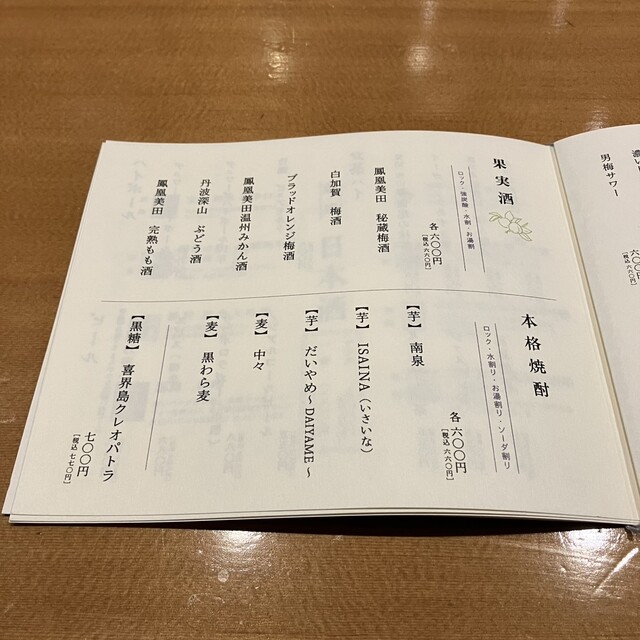 果実酒
ロック・強炭酸・水割・お湯割
各六〇〇円
［税込 六六〇円］
鳳凰美田 秘蔵梅酒
白加賀 梅酒
ブラッドオレンジ梅酒
鳳凰美田温州みかん酒
丹波深山 ぶどう酒
鳳凰美田 完熟もも酒
本格焼酎
ロック・水割り・お湯割り・ソーダ割り
各六〇〇円
［税込 六六〇円］
【芋】 南泉
【芋】 ISAINA（いさいな）
【芋】 だいやめ～DAIYAME～
【麦】 中々
【麦】 黒わら麦
【黒糖】 喜界島クレオパトラ
七〇〇円
［税込 七七〇円］
男梅サワー